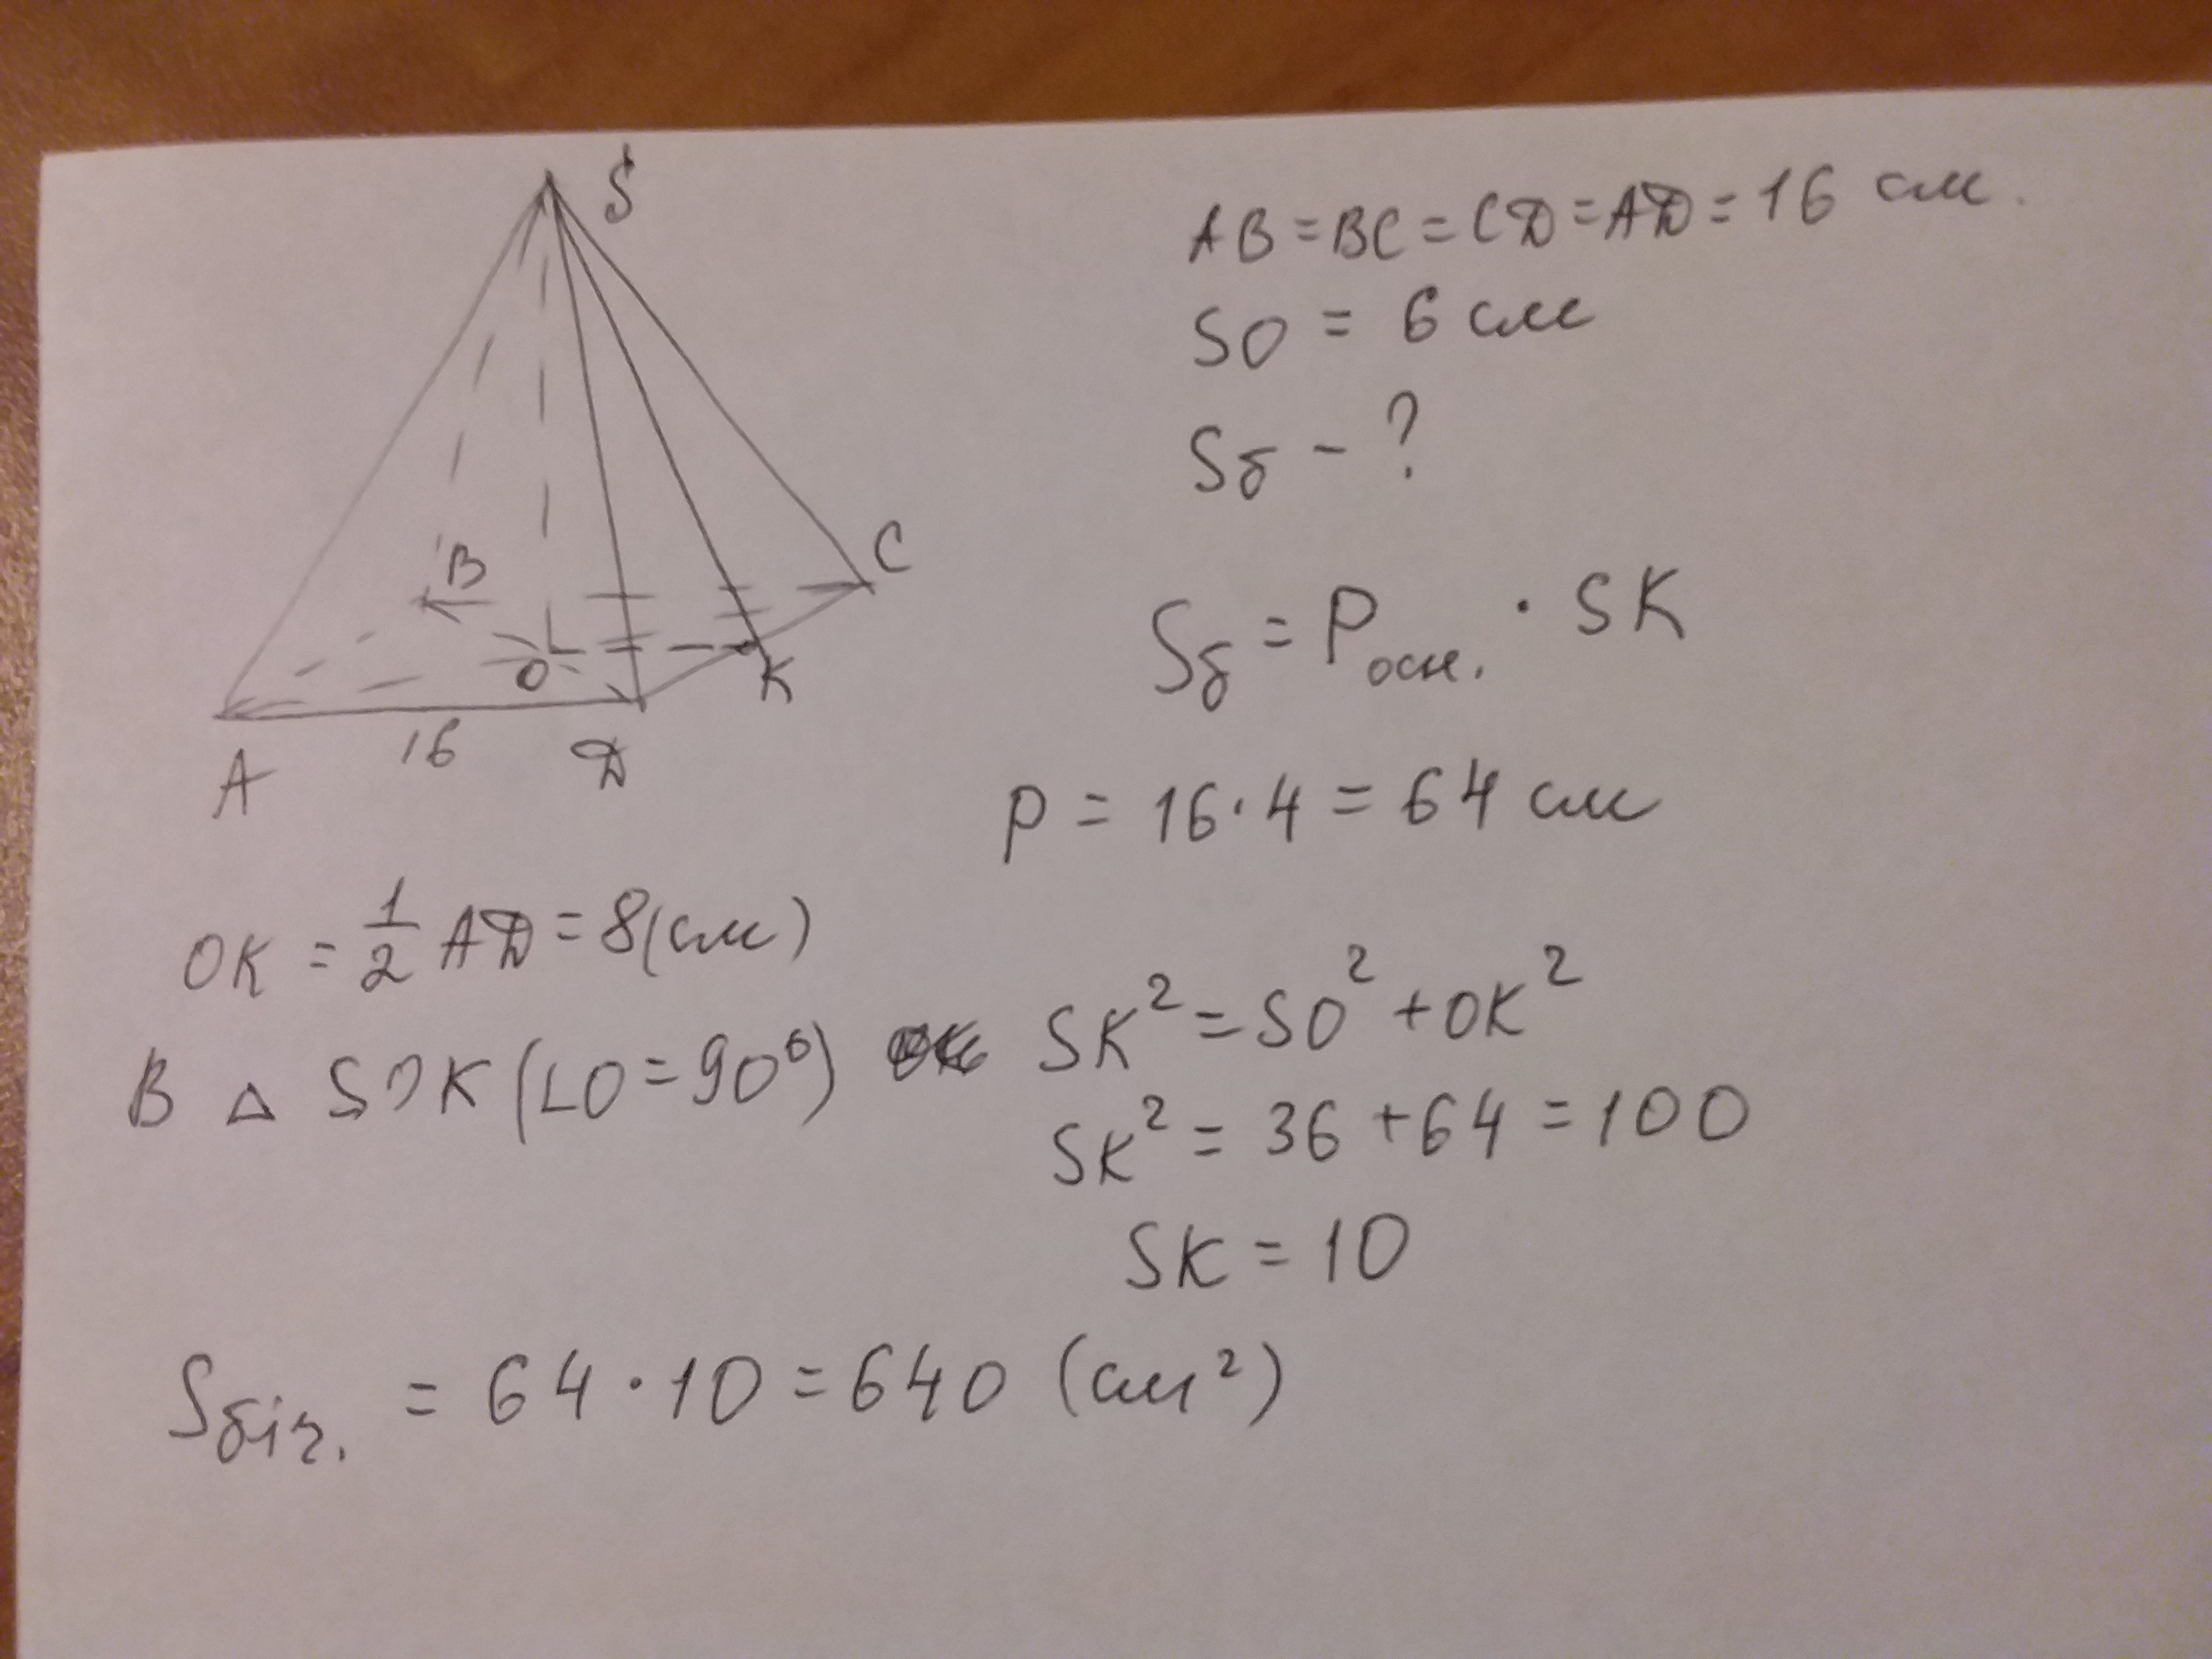 S
B
C
O
K
16
A
D
AB = BC = CD = AD = 16 см.
SO = 6 см
Sб - ?
Sб = Pосн. · SK
P = 16 · 4 = 64 см
OK = 1/2 AD = 8 (см)
В △ SOK (∠O = 90°) SK² = SO² + OK²
SK² = 36 + 64 = 100
SK = 10
Sбіч. = 64 · 10 = 640 (см²)